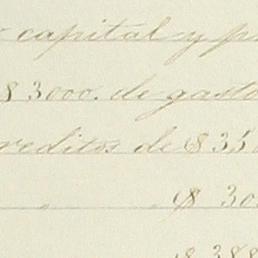 capital y p
$3000. de gasto
reditos de $35
" " $ 30
$ 388